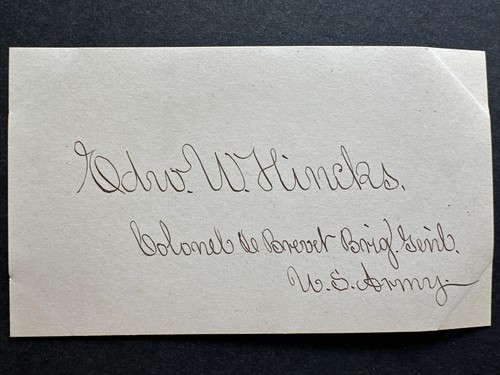 Edw. W. Hincks.
Colonel & Brevet Brig. Genl.
U.S. Army.